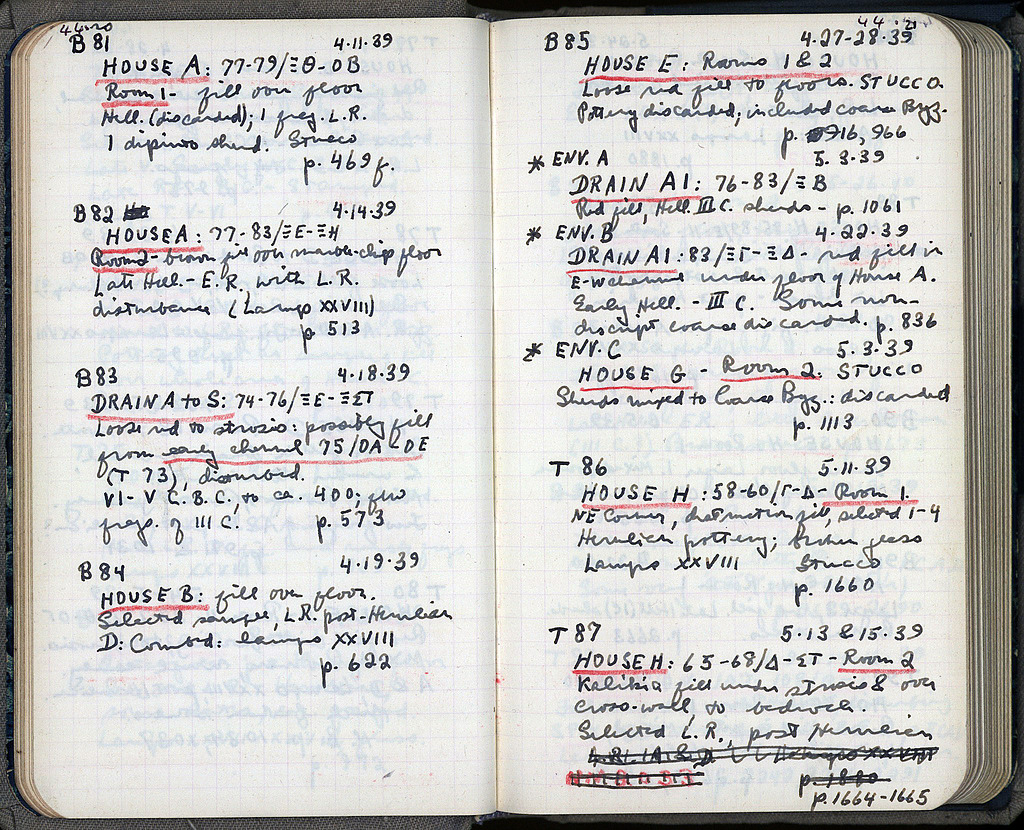 44.20
B 81 4.11.39
HOUSE A: 77-79/ΞΘ-ΟΒ
Room 1- fill over floor
Hell. (discarded); 1 frag. L.R.
1 dipinto sherd. Stucco
p. 469 f.
B 82 4.14.39
HOUSE A: 77-83/ΞΕ-ΞΗ
Room 2- brown fill over marble-chip floor
Late Hell.- E.R. with L.R.
disturbance (Lamps XXVIII)
p. 513
B 83 4.18.39
DRAIN A to S: 74-76/ΞΕ-ΞΣΤ
Loose red to strosis: possibly fill
from early channel 75/ΟΑ-ΟΕ
(T 73), disturbed.
VI-V C. B.C. to ca. 400; few
frags. of III C. p. 573
B 84 4.19.39
HOUSE B: fill over floor.
Selected sample, L.R. post-Herulian
D: Combed: lamps XXVIII
p. 622
44.21
B 85 4-27-28-39
HOUSE E: Rooms 1 & 2
Loose red fill to floors. STUCCO.
Pottery discarded; included coarse Byz.
p. 916, 966
* ENV. A 5.3.39
DRAIN A1: 76-83/ΞΒ
Red fill, Hell. III C. sherds - p. 1061
* ENV. B 4.22.39
DRAIN A1: 83/ΞΓ-ΞΔ- red fill in
E-W channel under floor of House A.
Early Hell. - III C. Some non-
descript coarse discarded. p. 836
* ENV. C 5.3.39
HOUSE G - Room 2. STUCCO
Sherds mixed to Coarse Byz.: discarded
p. 1113
T 86 5.11.39
HOUSE H: 58-60/Γ-Δ- Room 1.
NE Corner, destruction fill, selected 1-4
Herulian pottery; broken glass
Lamps XXVIII Stucco
p. 1660
T 87 5.13 & 15.39
HOUSE H: 65-68/Δ-ΣΤ- Room 2
Kalikia fill under strosis 8 over
cross-wall, to bedrock.
Selected L.R., post Herulian
p. 1880
p. 1664-1665